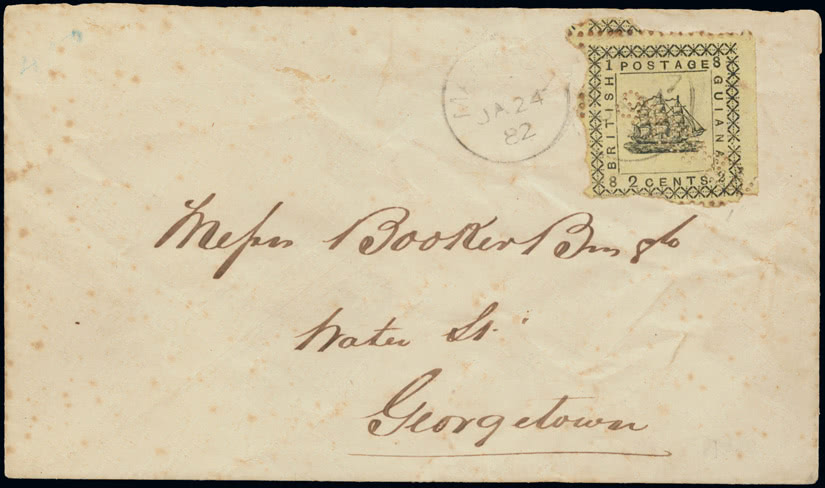 M
JA 24
82
1 POSTAGE 8
BRITISH
GUIANA
8 2 CENTS 2
Messrs Booker Bros & Co
Water St.
Georgetown